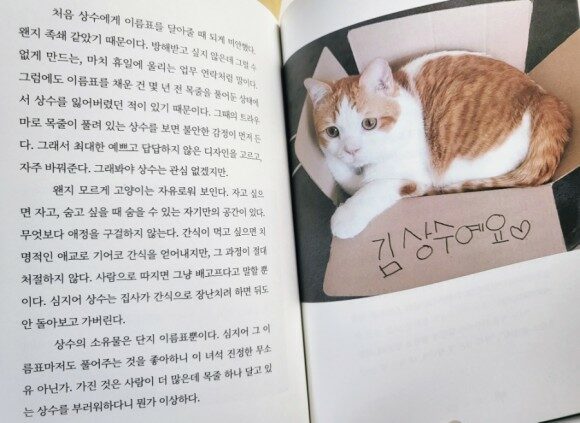 처음 상수에게 이름표를 달아줄 때 되게 미안했다.
왠지 족쇄 같았기 때문이다. 방해받고 싶지 않은데 그럴 수
없게 만드는, 마치 휴일에 울리는 업무 연락처럼 말이다.
그럼에도 이름표를 채운 건 몇 년 전 목줄을 풀어둔 상태에
서 상수를 잃어버렸던 적이 있기 때문이다. 그때의 트라우
마로 목줄이 풀려 있는 상수를 보면 불안한 감정이 먼저 든
다. 그래서 최대한 예쁘고 답답하지 않은 디자인을 고르고,
자주 바꿔준다. 그래봐야 상수는 관심 없겠지만.
왠지 모르게 고양이는 자유로워 보인다. 자고 싶으
면 자고, 숨고 싶을 때 숨을 수 있는 자기만의 공간이 있다.
무엇보다 애정을 구걸하지 않는다. 간식이 먹고 싶으면 치
명적인 애교로 기어코 간식을 얻어내지만, 그 과정이 절대
처절하지 않다. 사람으로 따지면 그냥 배고프다고 말할 뿐
이다. 심지어 상수는 집사가 간식으로 장난치려 하면 뒤도
안 돌아보고 가버린다.
상수의 소유물은 단지 이름표뿐이다. 심지어 그 이
름표마저도 풀어주는 것을 좋아하니 이 녀석 진정한 무소
유 아닌가. 가진 것은 사람이 더 많은데 목줄 하나 달고 있
는 상수를 부러워하다니 뭔가 이상하다.
김상수예요♡